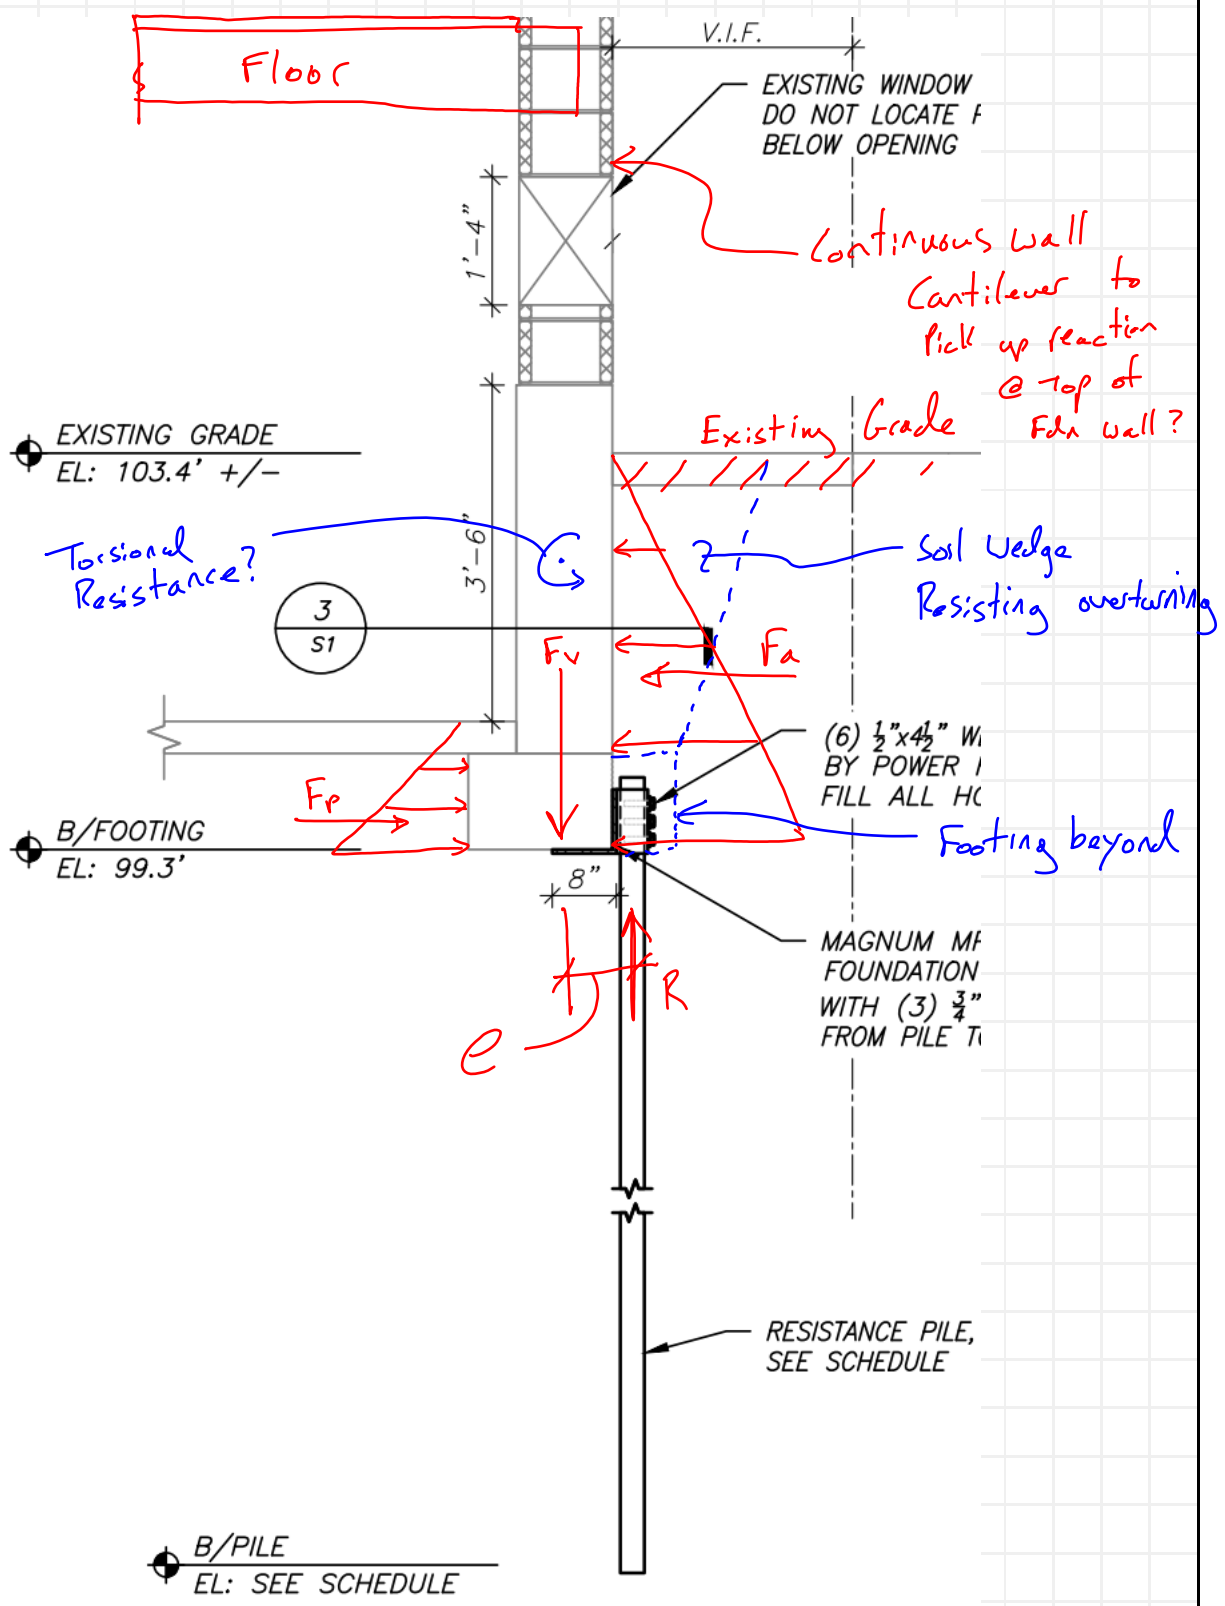 Floor
V.I.F.
EXISTING WINDOW
DO NOT LOCATE
BELOW OPENING
1'-4"
Continuous wall
Cantilever to
Pick up reaction
@ Top of
Fdn wall?
EXISTING GRADE
EL: 103.4' +/-
Existing Grade
3'-6"
Torsional
Resistance?
Soil Wedge
Resisting overturning
3
S1
Fv
Fa
(6) ½"x4½"
BY POWER
FILL ALL
Fp
B/FOOTING
EL: 99.3'
Footing beyond
8"
MAGNUM
FOUNDATION
WITH (3) ¾"
FROM PILE
R
e
RESISTANCE PILE,
SEE SCHEDULE
B/PILE
EL: SEE SCHEDULE